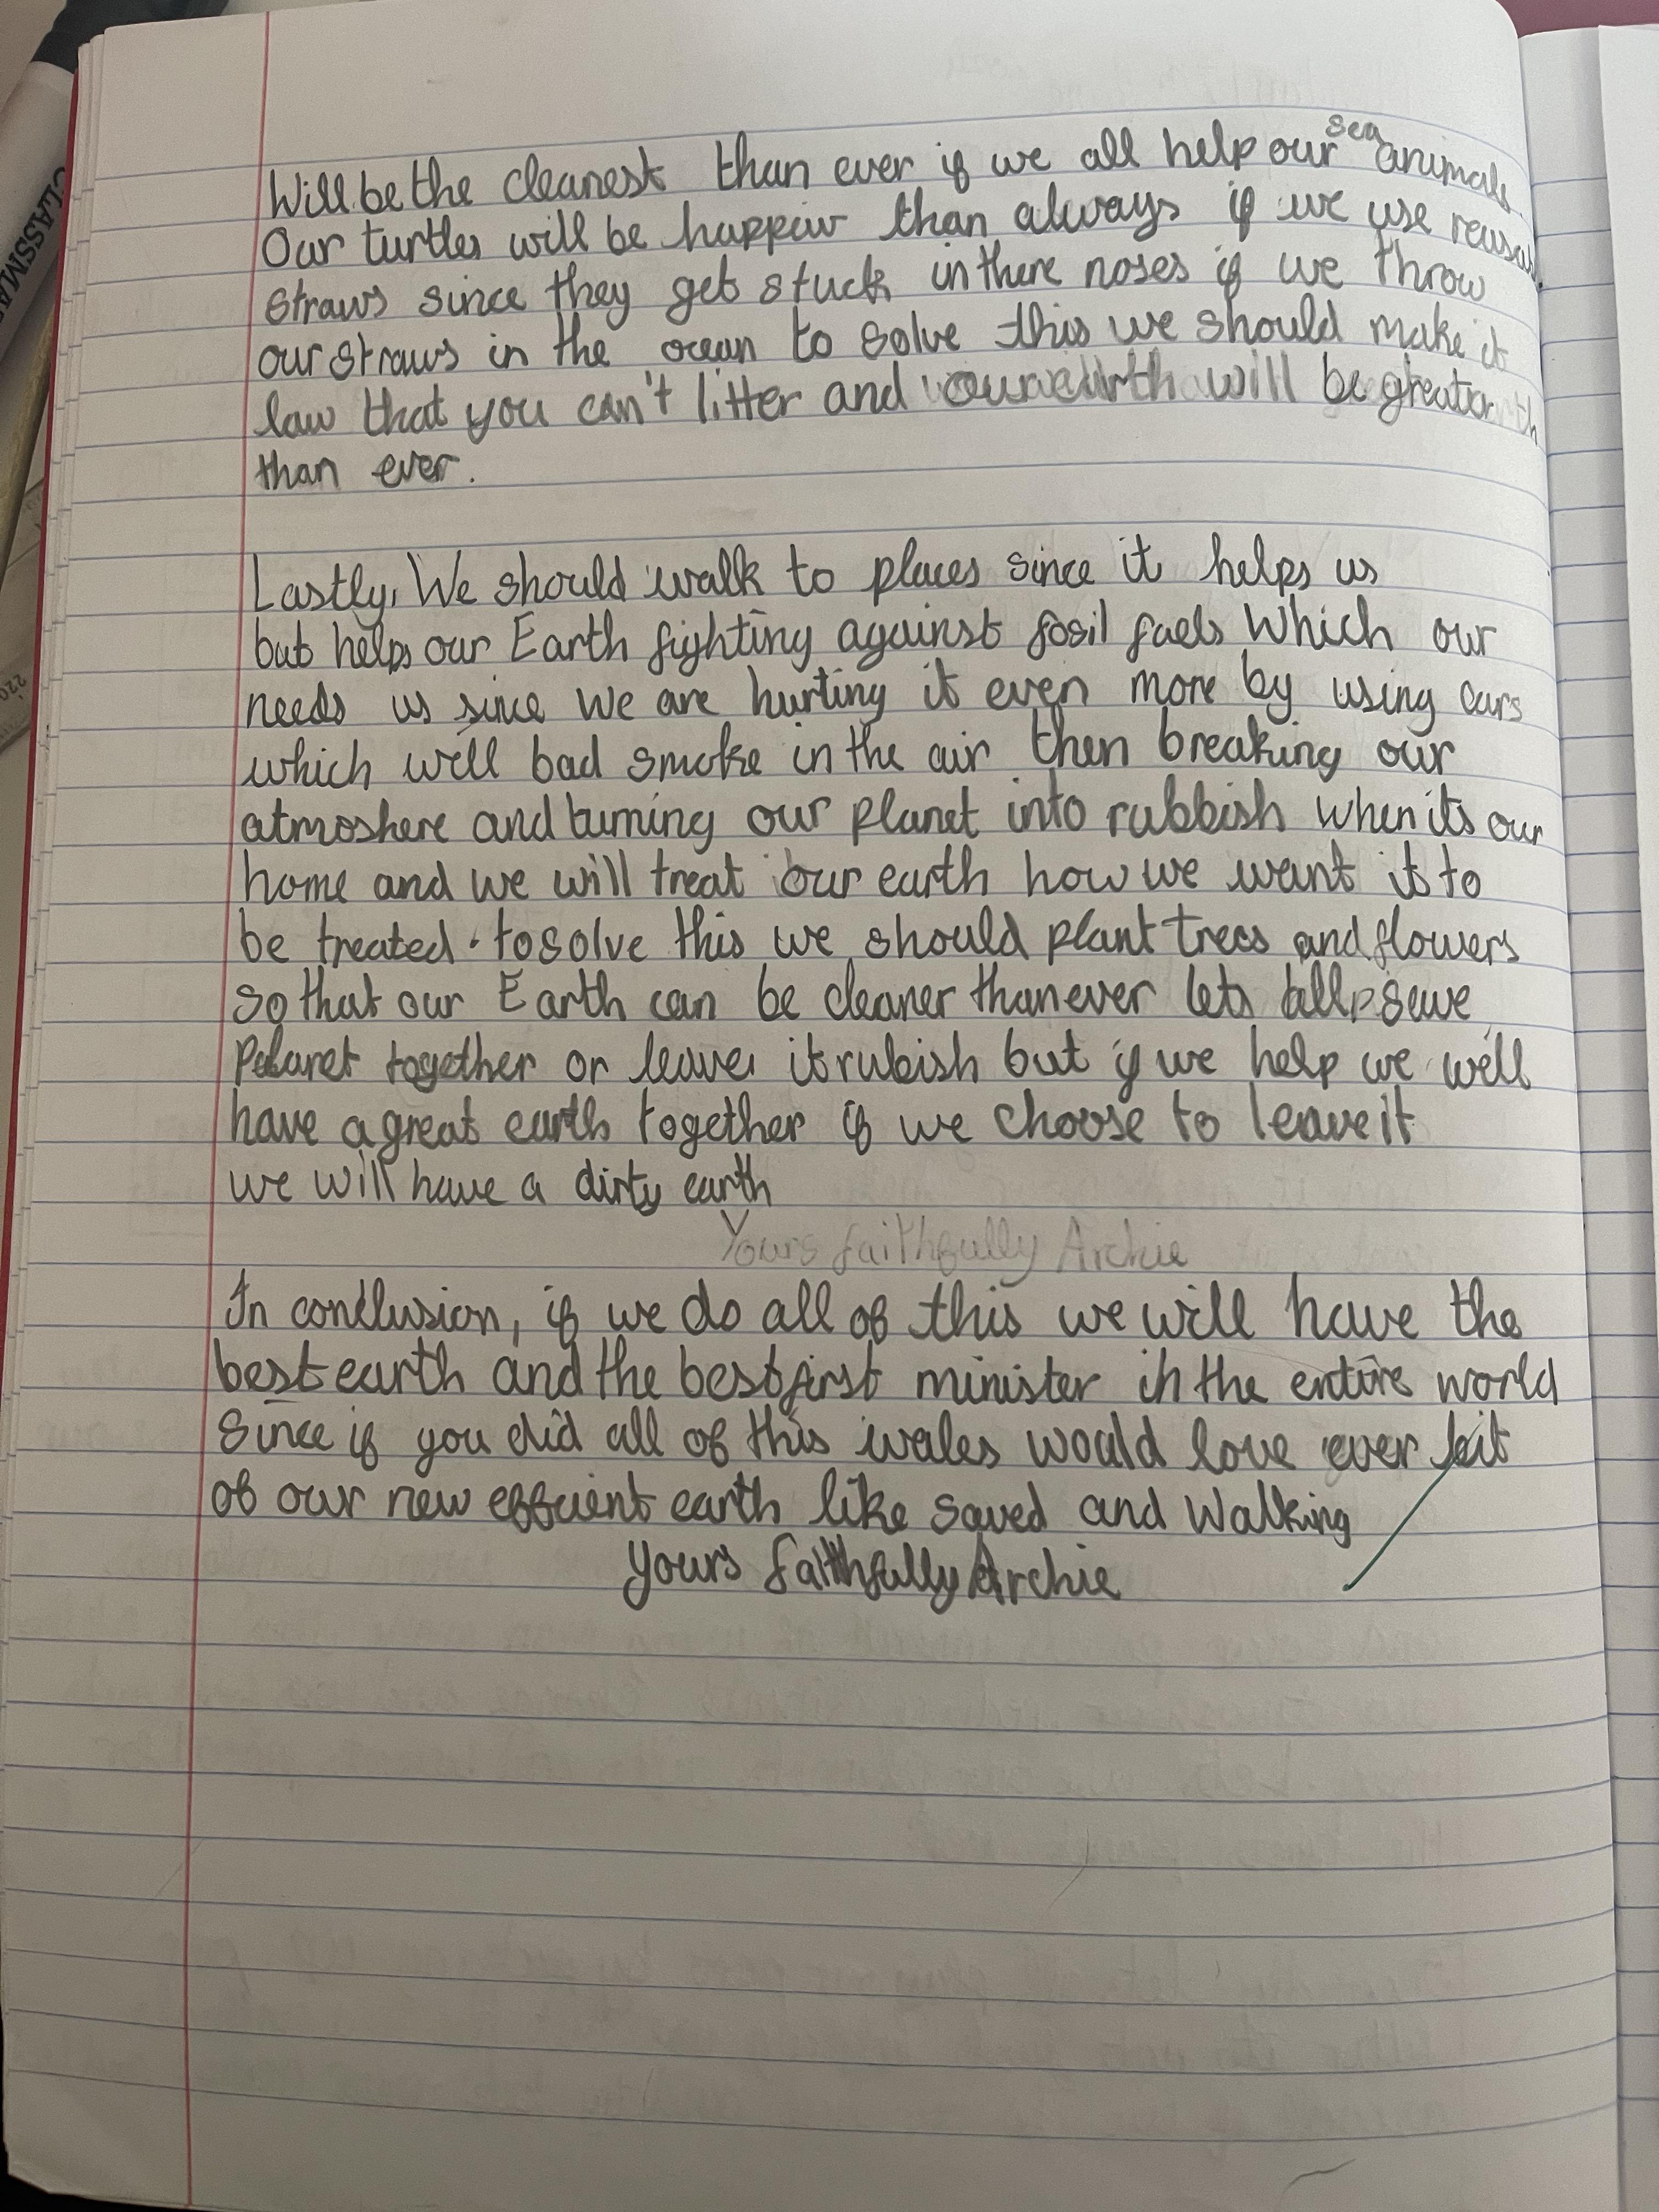 Will be the cleanest than ever if we all help our sea animals
Our turtles will be happier than always if we use
straws since they get stuck in there noses if we throw
our straws in the ocean to solve this we should make it
law that you can't litter and our earth will be greator
than ever.
Lastly, We should walk to places since it helps us
but helps our Earth fighting against fosil fuels Which our
needs us since we are hurting it even more by using cars
which will bad smoke in the air then breaking our
atmoshere and turning our planet into rubbish when its our
home and we will treat our earth how we want it to
be treated. to solve this we should plant trees and flowers
so that our Earth can be cleaner than ever lets all save
Planet together or leave it rubish but if we help we will
have a great earth together if we choose to leave it
we will have a dirty earth
Yours faithfully Archie
In conclusion, if we do all of this we will have the
best earth and the best first minister in the entire world
Since if you did all of this wales would love ever bit
of our new effcient earth like saved and walking
yours faithfully Archie
CLASSMA
220